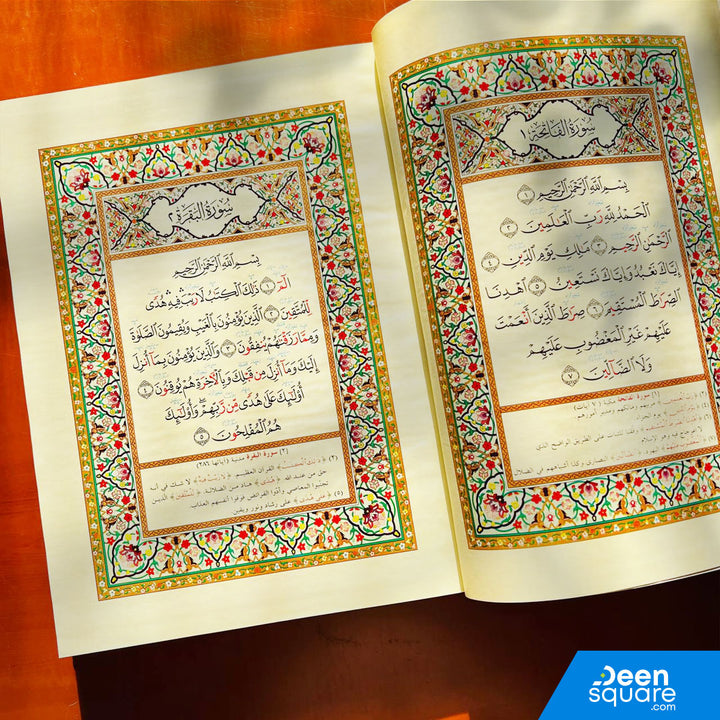 سُورَةُ الْفَاتِحَةِ ١
بِسْمِ اللَّهِ الرَّحْمَٰنِ الرَّحِيمِ ١
الْحَمْدُ لِلَّهِ رَبِّ الْعَالَمِينَ ٢
الرَّحْمَٰنِ الرَّحِيمِ ٣ مَالِكِ يَوْمِ الدِّينِ ٤
إِيَّاكَ نَعْبُدُ وَإِيَّاكَ نَسْتَعِينُ ٥ اهْدِنَا
الصِّرَاطَ الْمُسْتَقِيمَ ٦ صِرَاطَ الَّذِينَ أَنْعَمْتَ
عَلَيْهِمْ غَيْرِ الْمَغْضُوبِ عَلَيْهِمْ
وَلَا الضَّالِّينَ ٧
(١) سورة الفاتحة مكية (٧ آيات)
سُورَةُ الْبَقَرَةِ ٢
بِسْمِ اللَّهِ الرَّحْمَٰنِ الرَّحِيمِ
الٓمٓ ١ ذَٰلِكَ الْكِتَابُ لَا رَيْبَ فِيهِ هُدًى
لِلْمُتَّقِينَ ٢ الَّذِينَ يُؤْمِنُونَ بِالْغَيْبِ وَيُقِيمُونَ الصَّلَاةَ
وَمِمَّا رَزَقْنَاهُمْ يُنْفِقُونَ ٣ وَالَّذِينَ يُؤْمِنُونَ بِمَا أُنْزِلَ
إِلَيْكَ وَمَا أُنْزِلَ مِنْ قَبْلِكَ وَبِالْآخِرَةِ هُمْ يُوقِنُونَ ٤
أُولَٰئِكَ عَلَىٰ هُدًى مِنْ رَبِّهِمْ وَأُولَٰئِكَ
هُمُ الْمُفْلِحُونَ ٥
(٢) سورة البقرة مدنية (آياتها ٢٨٦)
Deen
square
.com